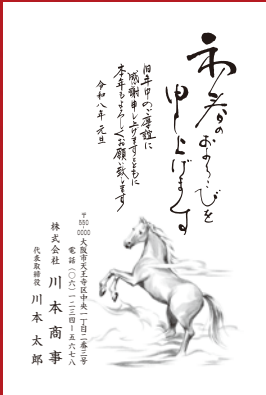 初春のおよろこびを
申し上げます
旧年中のご厚誼に
感謝申し上げますとともに
本年もよろしくお願い致します
令和八年 元旦
〒550-0000
大阪市天王寺区中央一丁目二番三号
電話(〇六)一二三四-五六七八
株式会社 川本商事
代表取締役 川本太郎